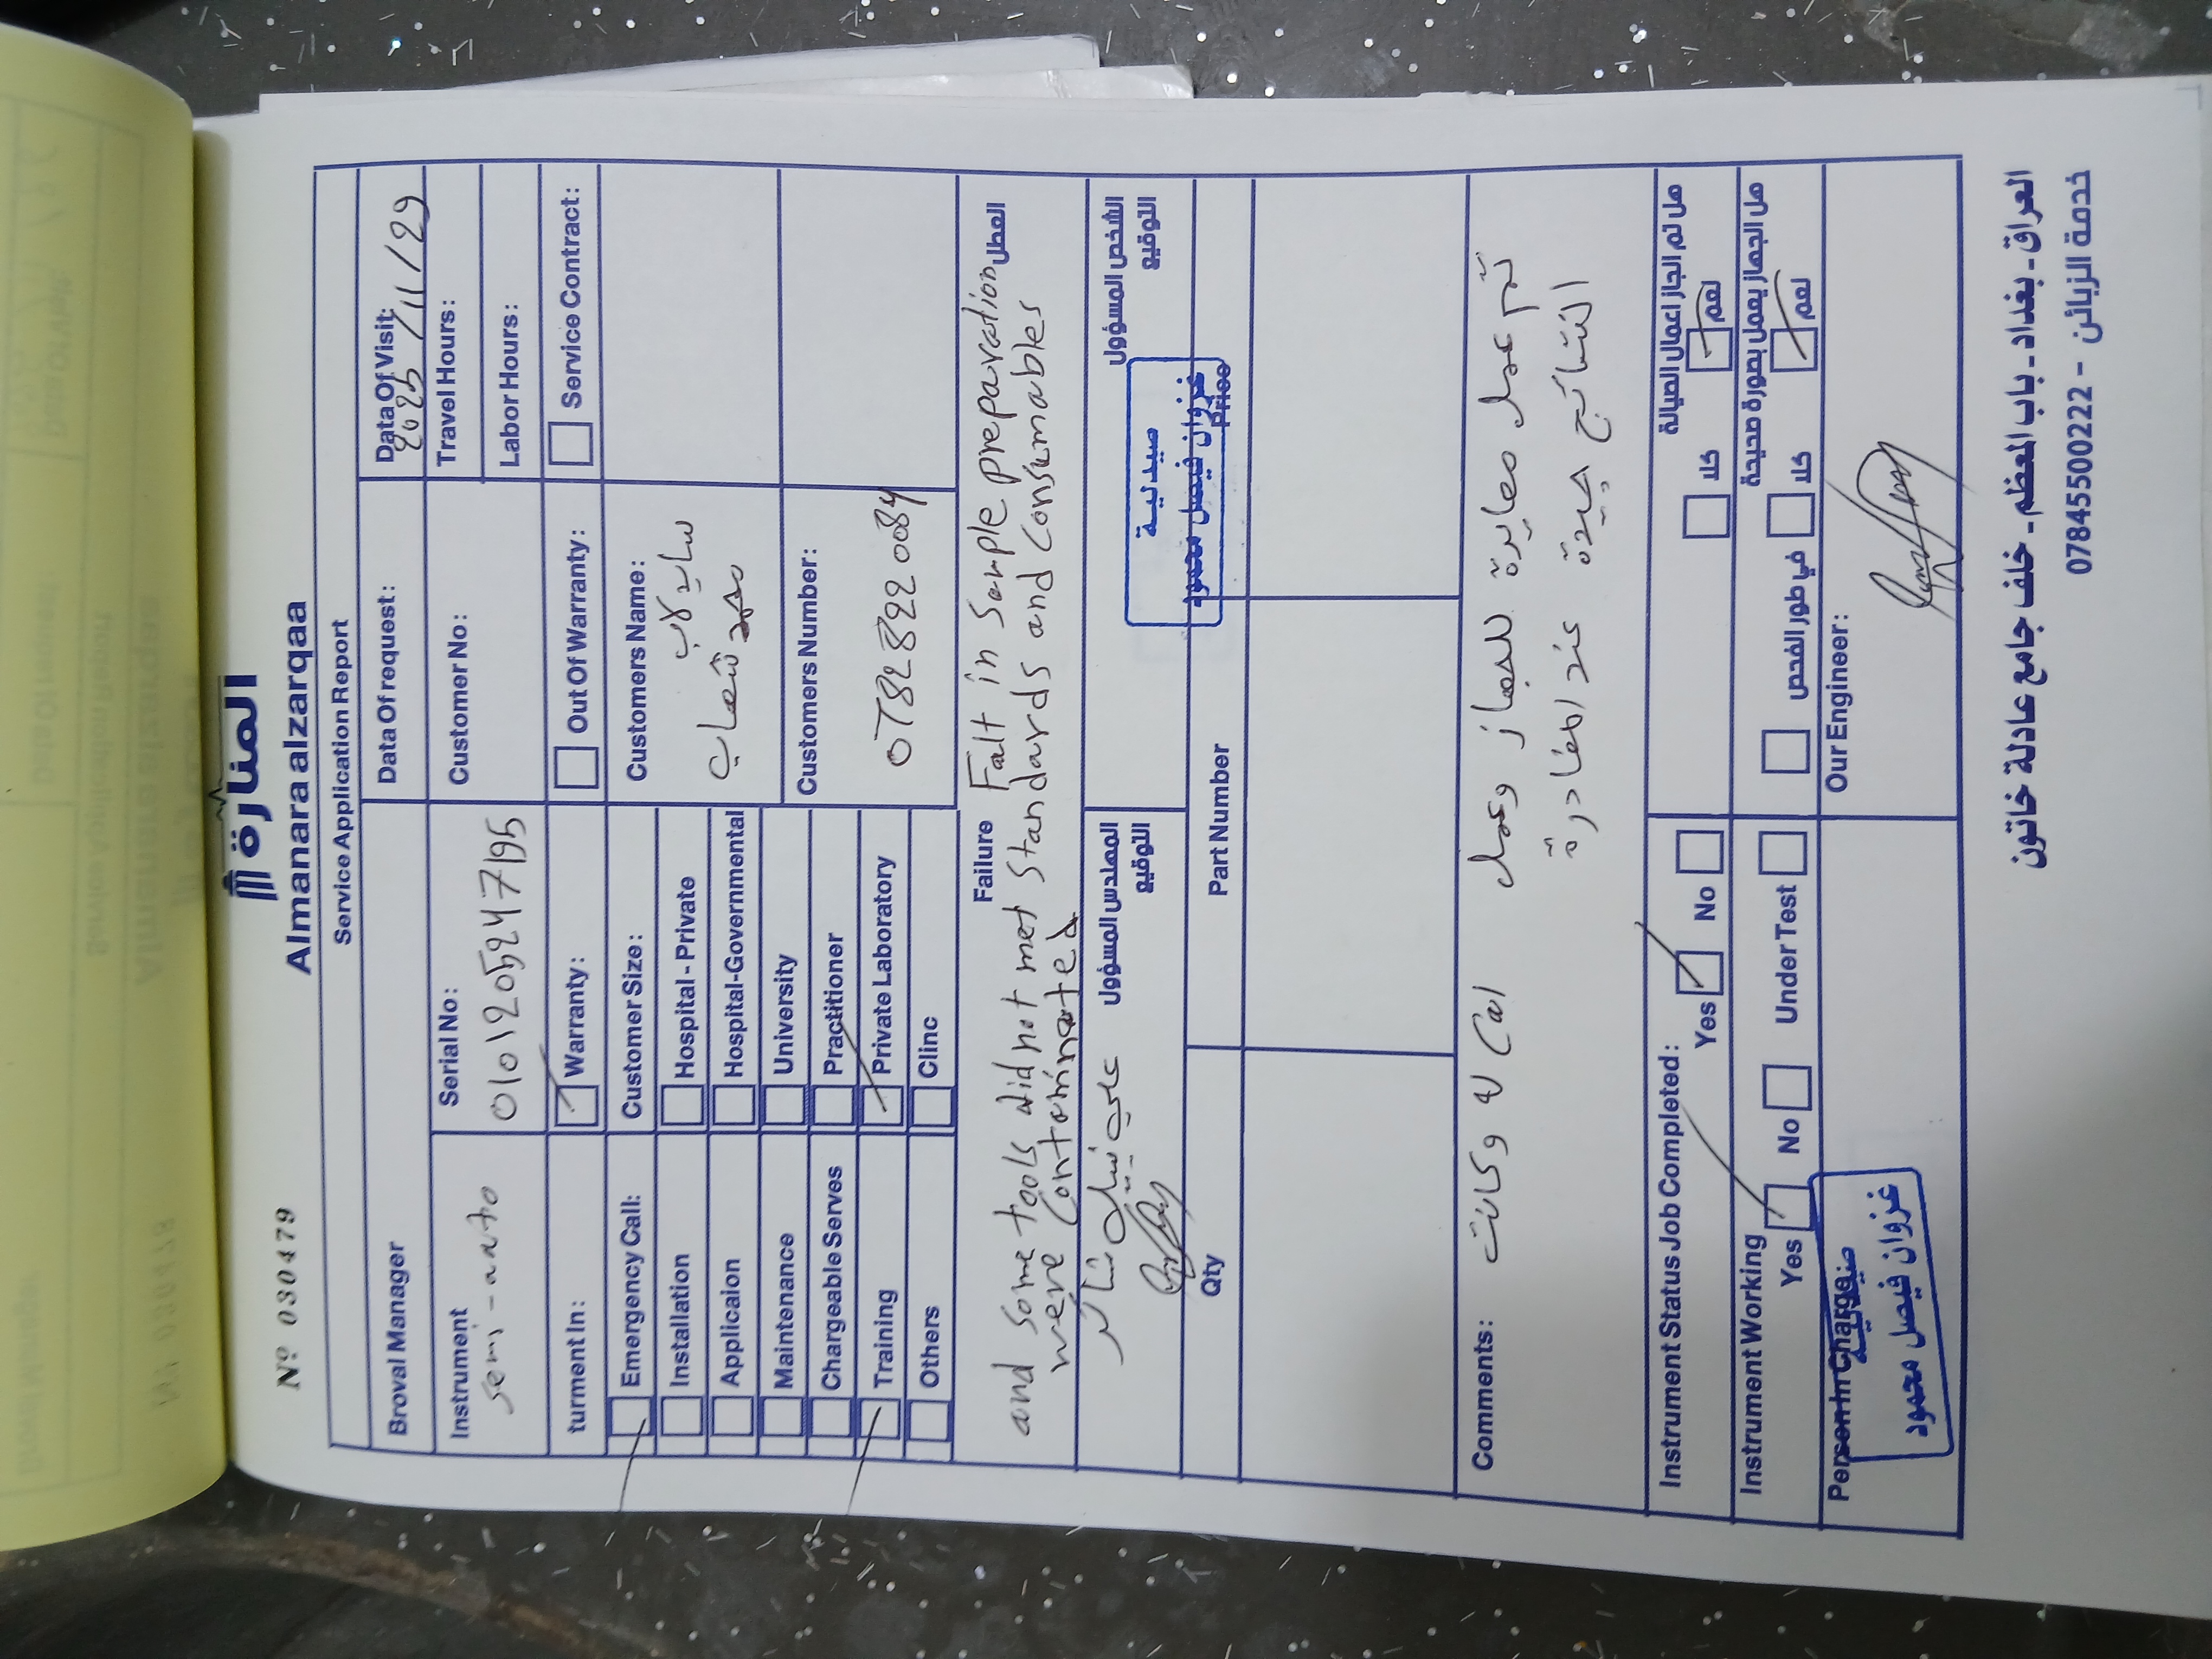 المنارة
Almanara alzarqaa
Nº 030479
Service Application Report
Broval Manager
Data Of request:
Data Of Visit:
2025/11/29
Instrument
semi-auto
Serial No:
0101205247195
Customer No:
Travel Hours:
Labor Hours:
turment In:
Warranty:
Out Of Warranty:
Service Contract:
Emergency Call:
Customer Size:
Customers Name:
سايد لاب
محمد شهاب
Installation
Hospital - Private
Applicaion
Hospital-Governmental
Maintenance
University
Customers Number:
07828220084
Chargeable Serves
Practitioner
Training
Private Laboratory
Others
Clinc
Failure
العطل
Falt in Sample preparation
and some tools did not met standards and consumables
were contaminated
المهندس المسؤول
التوقيع
الشخص المسؤول
التوقيع
صيدلية
غزوان فيصل محمود
Qty
Part Number
Price
Comments:
تم عمل معايرة للجهاز وعمل Cal و وكانت
النتائج جيدة عند المغادرة
Instrument Status Job Completed:
Yes
No
هل تم انجاز اعمال الصيانة
كلا
نعم
Instrument Working
Yes
No
Under Test
هل الجهاز يعمل بصورة صحيحة
في طور الفحص
كلا
نعم
Person In Charge:
صيدلية
غزوان فيصل محمود
Our Engineer:
العراق - بغداد - باب المعظم - خلف جامع عادلة خاتون
خدمة الزبائن - 07845500222